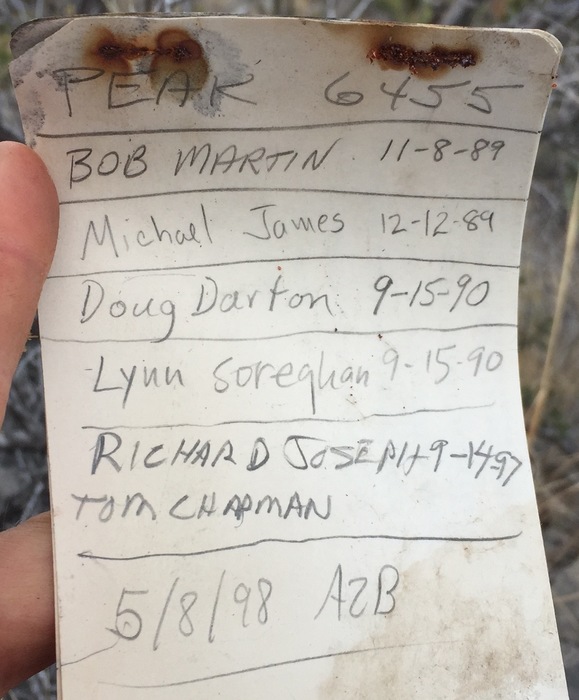 PEAK 6455
BOB MARTIN 11-8-89
Michael James 12-12-89
Doug Darton 9-15-90
Lynn Soreghan 9-15-90
RICHARD JOSEPH 9-14-97
TOM CHAPMAN
5/8/98 AZB